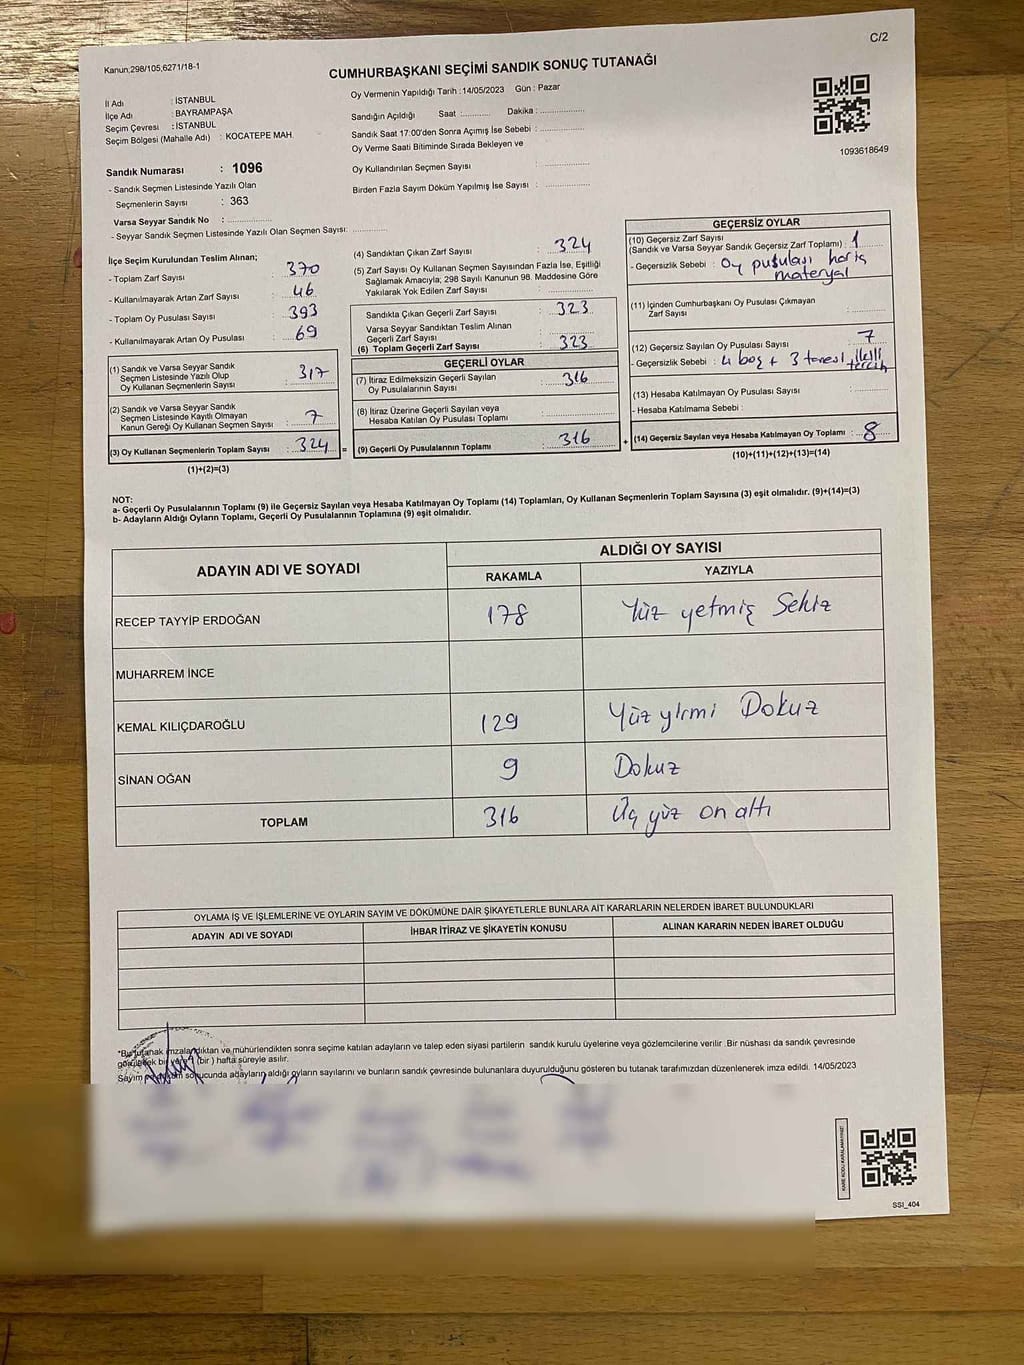 C/2
Kanun,298/105,6271/18-1
CUMHURBAŞKANI SEÇİMİ SANDIK SONUÇ TUTANAĞI
İl Adı : İSTANBUL
İlçe Adı : BAYRAMPAŞA
Seçim Çevresi : İSTANBUL
Seçim Bölgesi (Mahalle Adı) : KOCATEPE MAH.
Sandık Numarası : 1096
- Sandık Seçmen Listesinde Yazılı Olan
Seçmenlerin Sayısı : 363
Varsa Seyyar Sandık No : ..............
- Seyyar Sandık Seçmen Listesinde Yazılı Olan Seçmen Sayısı: ..............
Oy Vermenin Yapıldığı Tarih : 14/05/2023 Gün : Pazar
Sandığın Açıldığı Saat .......... Dakika : ..............
Sandık Saat 17:00'den Sonra Açımış İse Sebebi : ..............
Oy Verme Saati Bitiminde Sırada Bekleyen ve
Oy Kullandırılan Seçmen Sayısı : ..............
Birden Fazla Sayım Döküm Yapılmış İse Sayısı : ..............
1093618649
İlçe Seçim Kurulundan Teslim Alınan;
- Toplam Zarf Sayısı : 370
- Kullanılmayarak Artan Zarf Sayısı : 46
- Toplam Oy Pusulası Sayısı : 393
- Kullanılmayarak Artan Oy Pusulası : 69
(1) Sandık ve Varsa Seyyar Sandık
Seçmen Listesinde Yazılı Olup
Oy Kullanan Seçmenlerin Sayısı : 317
(2) Sandık ve Varsa Seyyar Sandık
Seçmen Listesinde Kayıtlı Olmayan
Kanun Gereği Oy Kullanan Seçmen Sayısı : 7
(3) Oy Kullanan Seçmenlerin Toplam Sayısı : 324 =
(1)+(2)=(3)
(4) Sandıktan Çıkan Zarf Sayısı : 324
(5) Zarf Sayısı Oy Kullanan Seçmen Sayısından Fazla İse, Eşitliği
Sağlamak Amacıyla; 298 Sayılı Kanunun 98. Maddesine Göre
Yakılarak Yok Edilen Zarf Sayısı : ..............
Sandıkta Çıkan Geçerli Zarf Sayısı : 323
Varsa Seyyar Sandıktan Teslim Alınan
Geçerli Zarf Sayısı : ..............
(6) Toplam Geçerli Zarf Sayısı : 323
GEÇERLİ OYLAR
(7) İtiraz Edilmeksizin Geçerli Sayılan
Oy Pusulalarının Sayısı : 316
(8) İtiraz Üzerine Geçerli Sayılan veya
Hesaba Katılan Oy Pusulası Toplamı : ..............
(9) Geçerli Oy Pusulalarının Toplamı : 316 +
GEÇERSİZ OYLAR
(10) Geçersiz Zarf Sayısı
(Sandık ve Varsa Seyyar Sandık Geçersiz Zarf Toplamı) : 1
- Geçersizlik Sebebi : Oy pusulası hariç
materyal
(11) İçinden Cumhurbaşkanı Oy Pusulası Çıkmayan
Zarf Sayısı : ..............
(12) Geçersiz Sayılan Oy Pusulası Sayısı : 7
- Geçersizlik Sebebi : 4 boş + 3 tanesi
tercih
(13) Hesaba Katılmayan Oy Pusulası Sayısı : ..............
- Hesaba Katılmama Sebebi :
(14) Geçersiz Sayılan veya Hesaba Katılmayan Oy Toplamı : 8
(10)+(11)+(12)+(13)=(14)
NOT:
a- Geçerli Oy Pusulalarının Toplamı (9) ile Geçersiz Sayılan veya Hesaba Katılmayan Oy Toplamı (14) Toplamları, Oy Kullanan Seçmenlerin Toplam Sayısına (3) eşit olmalıdır. (9)+(14)=(3)
b- Adayların Aldığı Oyların Toplamı, Geçerli Oy Pusulalarının Toplamına (9) eşit olmalıdır.
ADAYIN ADI VE SOYADI
ALDIĞI OY SAYISI
RAKAMLA YAZIYLA
RECEP TAYYİP ERDOĞAN 178 Yüz yetmiş Sekiz
MUHARREM İNCE
KEMAL KILIÇDAROĞLU 129 Yüz yirmi Dokuz
SİNAN OĞAN 9 Dokuz
TOPLAM 316 Üç yüz on altı
OYLAMA İŞ VE İŞLEMLERİNE VE OYLARIN SAYIM VE DÖKÜMÜNE DAİR ŞİKAYETLERLE BUNLARA AİT KARARLARIN NELERDEN İBARET BULUNDUKLARI
ADAYIN ADI VE SOYADI İHBAR İTİRAZ VE ŞİKAYETİN KONUSU ALINAN KARARIN NEDEN İBARET OLDUĞU
*Bu tutanak imzalandıktan ve mühürlendikten sonra seçime katılan adayların ve talep eden siyasi partilerin sandık kurulu üyelerine veya gözlemcilerine verilir .Bir nüshası da sandık çevresinde
bir (bir ) hafta süreyle asılır.
Sayım sonucunda adayların aldığı oyların sayılarını ve bunların sandık çevresinde bulunanlara duyurulduğunu gösteren bu tutanak tarafımızdan düzenlenerek imza edildi. 14/05/2023
KARE KODU KARALAMAYINIZ!
SSI_404